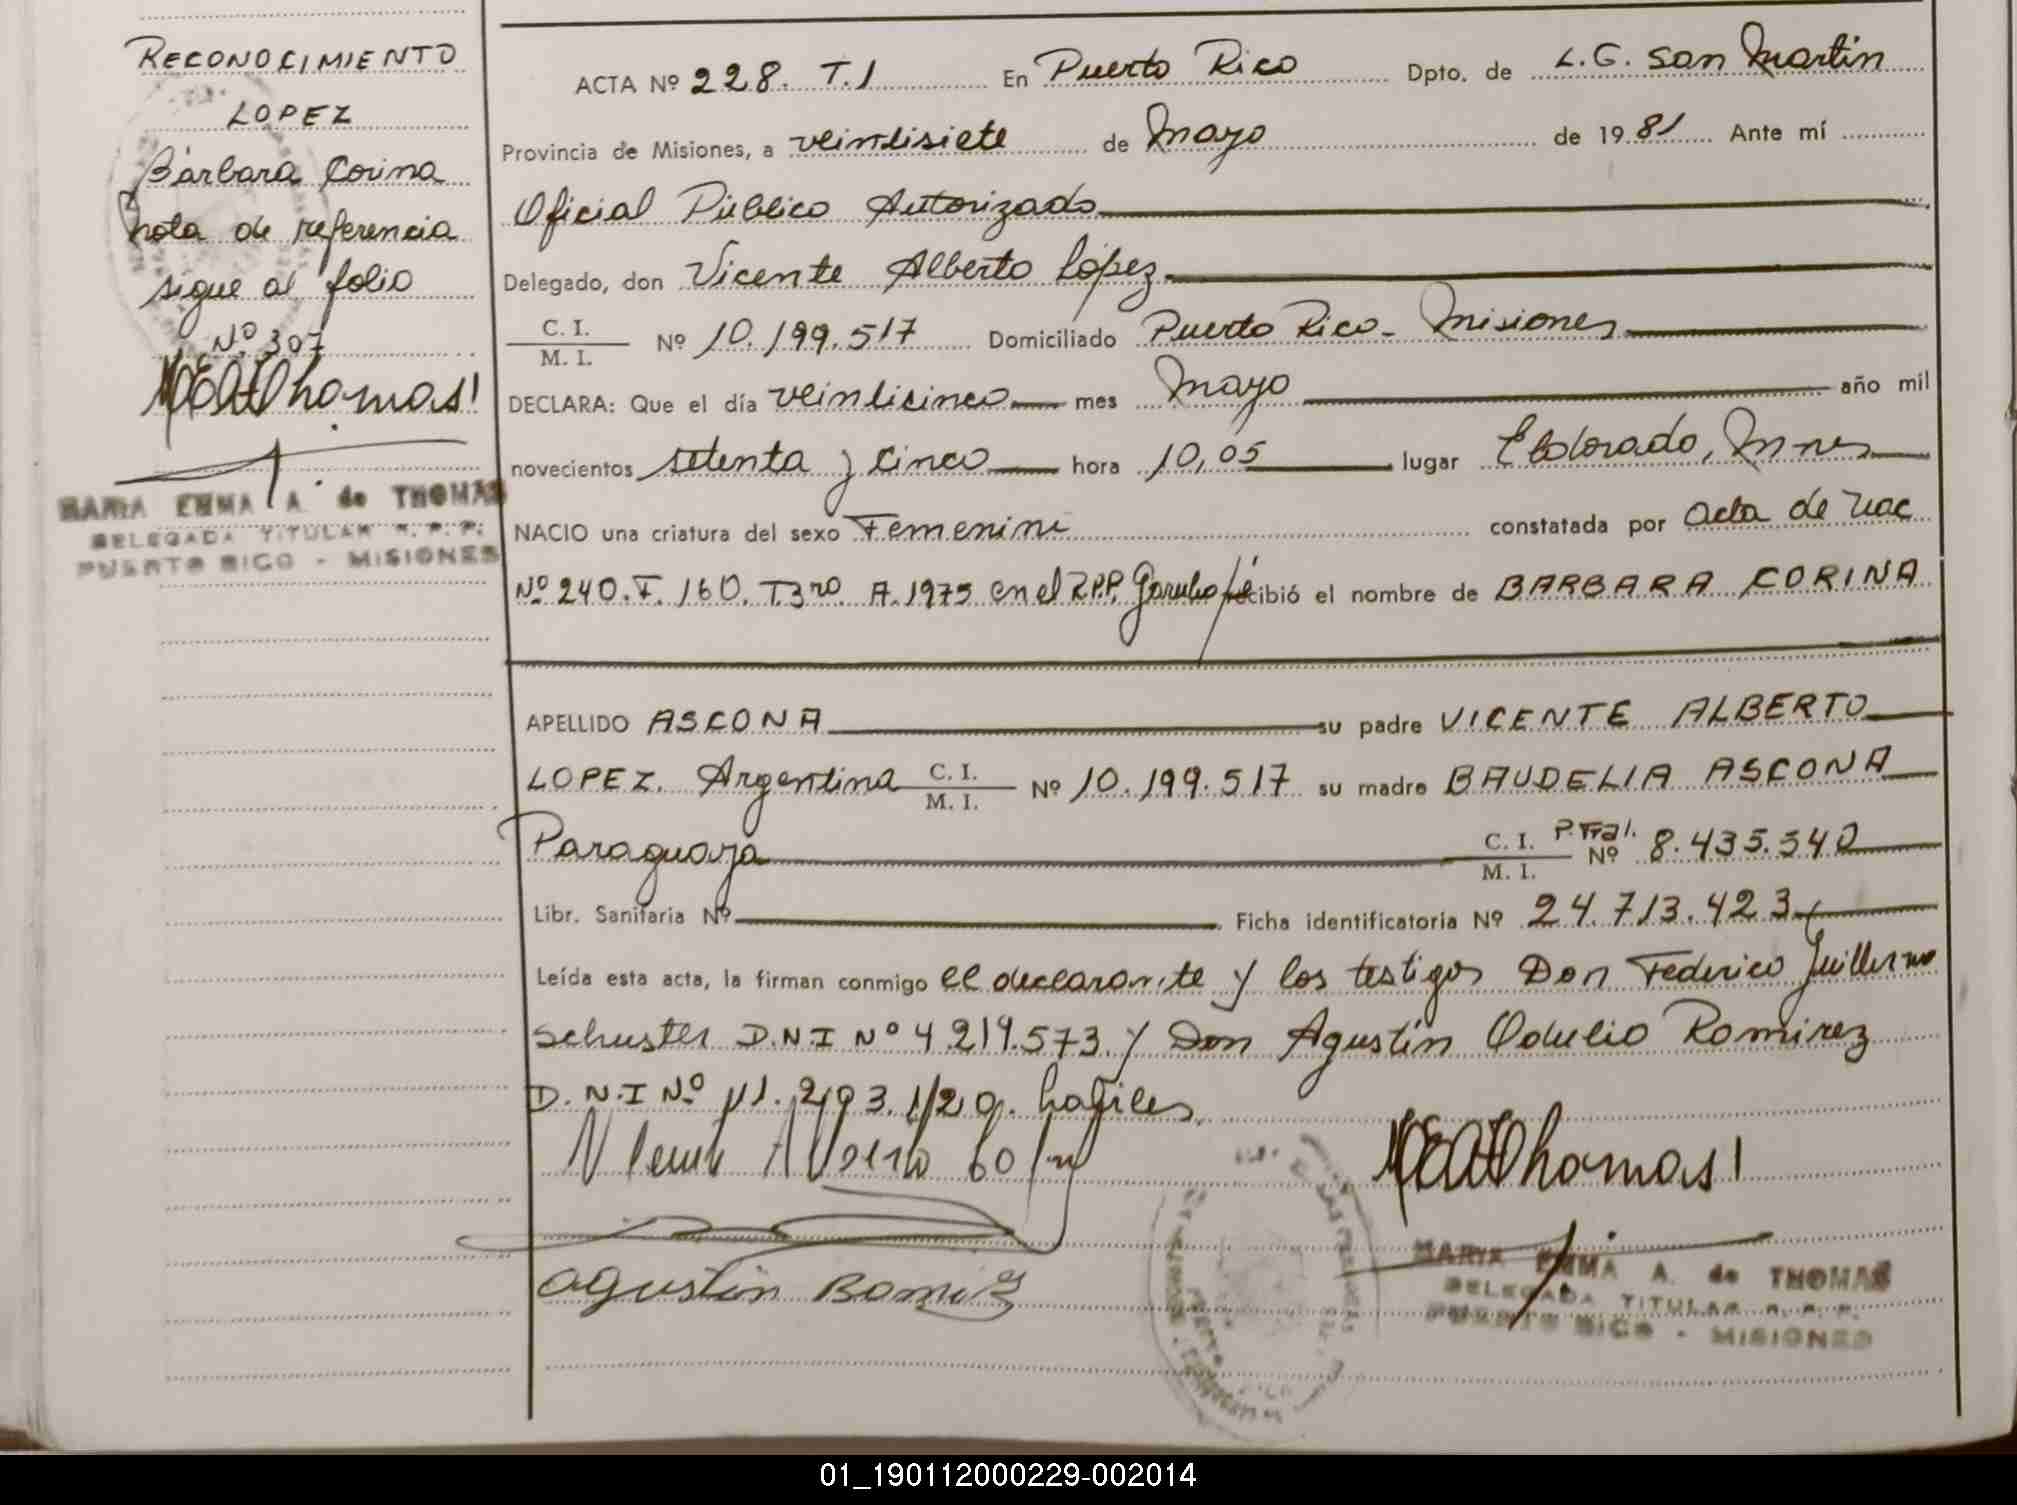 RECONOCIMIENTO
LOPEZ
Bárbara Corina
nota de referencia
sigue al folio
Nº 307
MEAThomas
MARIA EMMA A. de THOMAS
DELEGADA TITULAR R. P. P.
PUERTO RICO - MISIONES
ACTA Nº 228. T.1 En Puerto Rico Dpto. de L.G. San Martin
Provincia de Misiones, a veintisiete de Mayo de 1981 Ante mí
Oficial Público Autorizado
Delegado, don Vicente Alberto López
C. I. / M. I. Nº 10.199.517 Domiciliado Puerto Rico - Misiones
DECLARA: Que el día veinticinco mes Mayo año mil
novecientos setenta y cinco hora 10,05 lugar Eldorado, Mnes
NACIO una criatura del sexo Femenino constatada por acta de nac
Nº 240. F. 160. T.3ro. A. 1975 en el R.P.P. Garuhapé recibió el nombre de BARBARA CORINA
APELLIDO ASCONA su padre VICENTE ALBERTO
LOPEZ. Argentina C. I. / M. I. Nº 10.199.517 su madre BAUDELIA ASCONA
Paraguaya C. I. / M. I. P. Fral. Nº 8.435.340
Libr. Sanitaria Nº Ficha identificatoria Nº 24.713.423
Leída esta acta, la firman conmigo el declarante y los testigos Don Federico Guillermo
Schuster D.N.I Nº 4.219.573 y Don Agustín Odulio Ramirez
D.N.I Nº 11.293.120. hábiles
Vicente Alberto Lopez
MEAThomas
Agustin Ramirez
MARIA EMMA A. de THOMAS
DELEGADA TITULAR R. P. P.
PUERTO RICO - MISIONES
01_190112000229-002014